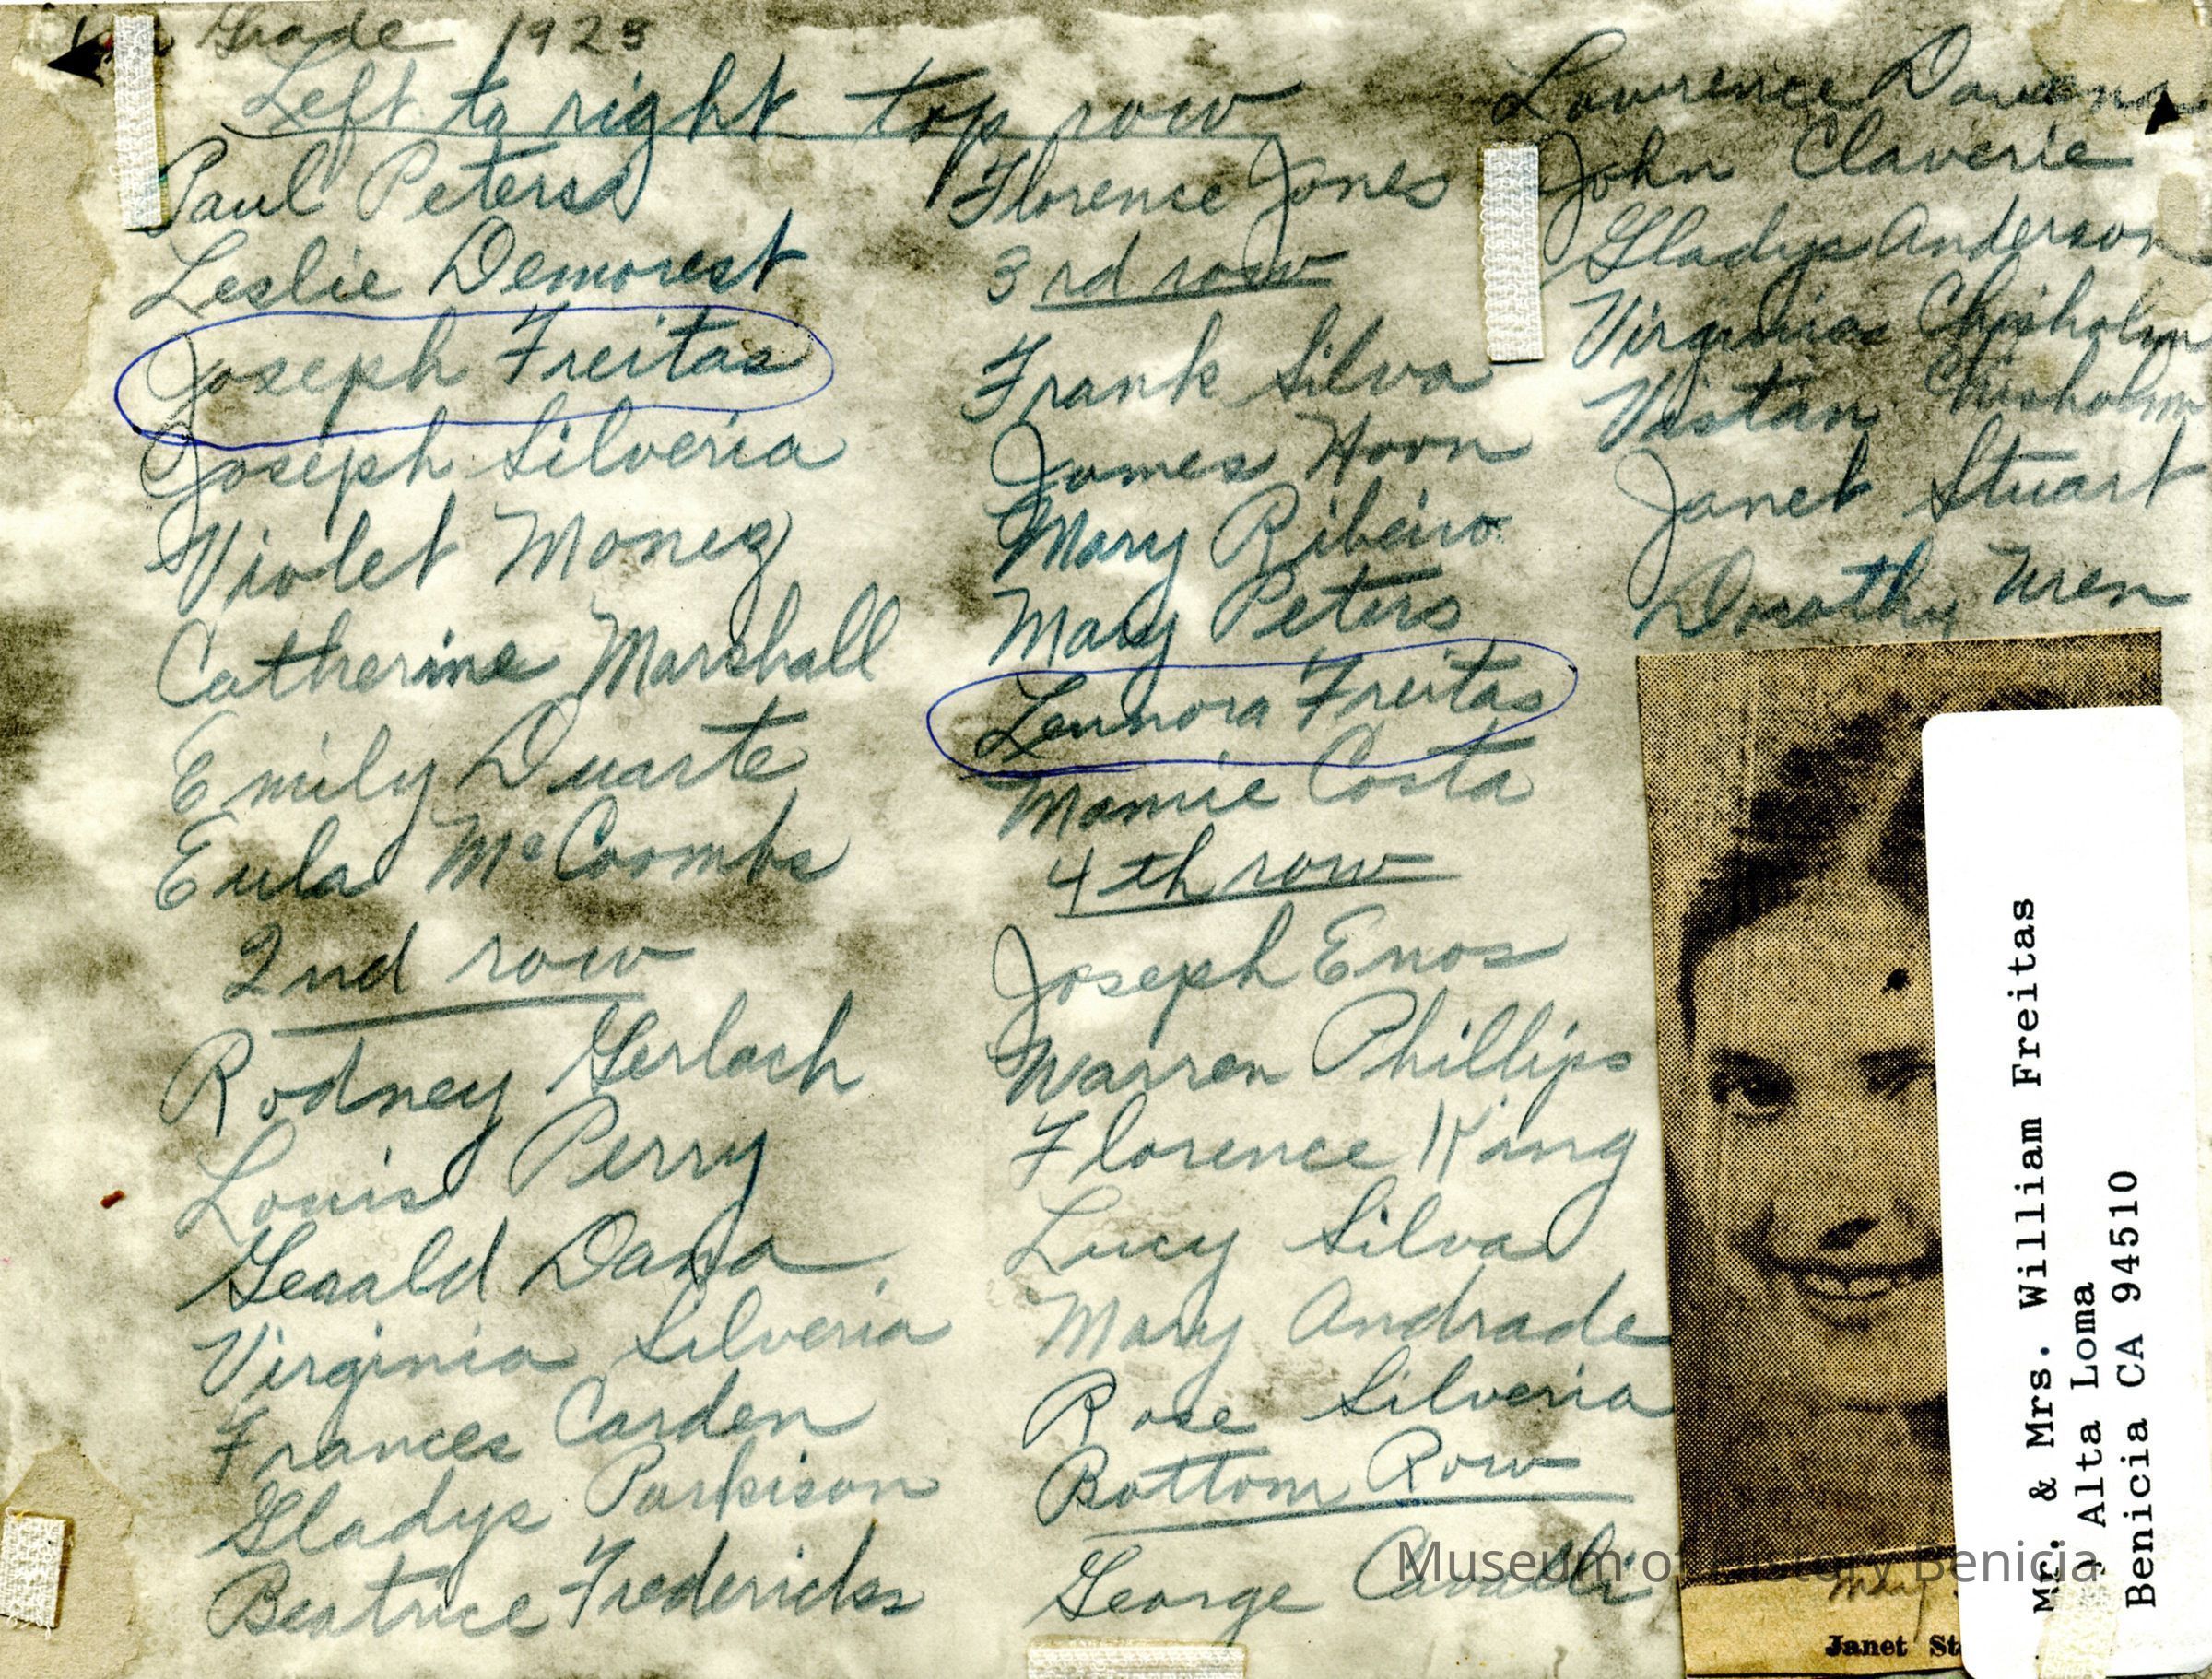 Grade 1923
Left to right top row
Paul Peters
Leslie Demorest
Joseph Freitas
Joseph Silveria
Violet Monez
Catherine Marshall
Emily Duarte
Eula McCoombs
2nd row
Rodney Gerlach
Louis Perry
Gerald Dana
Virginia Silveria
Frances Carden
Gladys Parkison
Beatrice Fredericks
Florence Jones
3rd row
Frank Silva
James Horn
Mary Ribeiro
Mary Peters
Lennora Freitas
Mamie Costa
4th row
Joseph Enos
Warren Phillips
Florence King
Lucy Silva
Mary Andrade
Rose Silveria
Bottom Row
George Cavalli
Lawrence
John Claverie
Gladys Anderson
Virginia Chisholm
Vistan Chisholm
Janet Stuart
Dorothy Uren
Mr. & Mrs. William Freitas
Alta Loma
Benicia CA 94510
Mary
Janet St
Museum of History Benicia